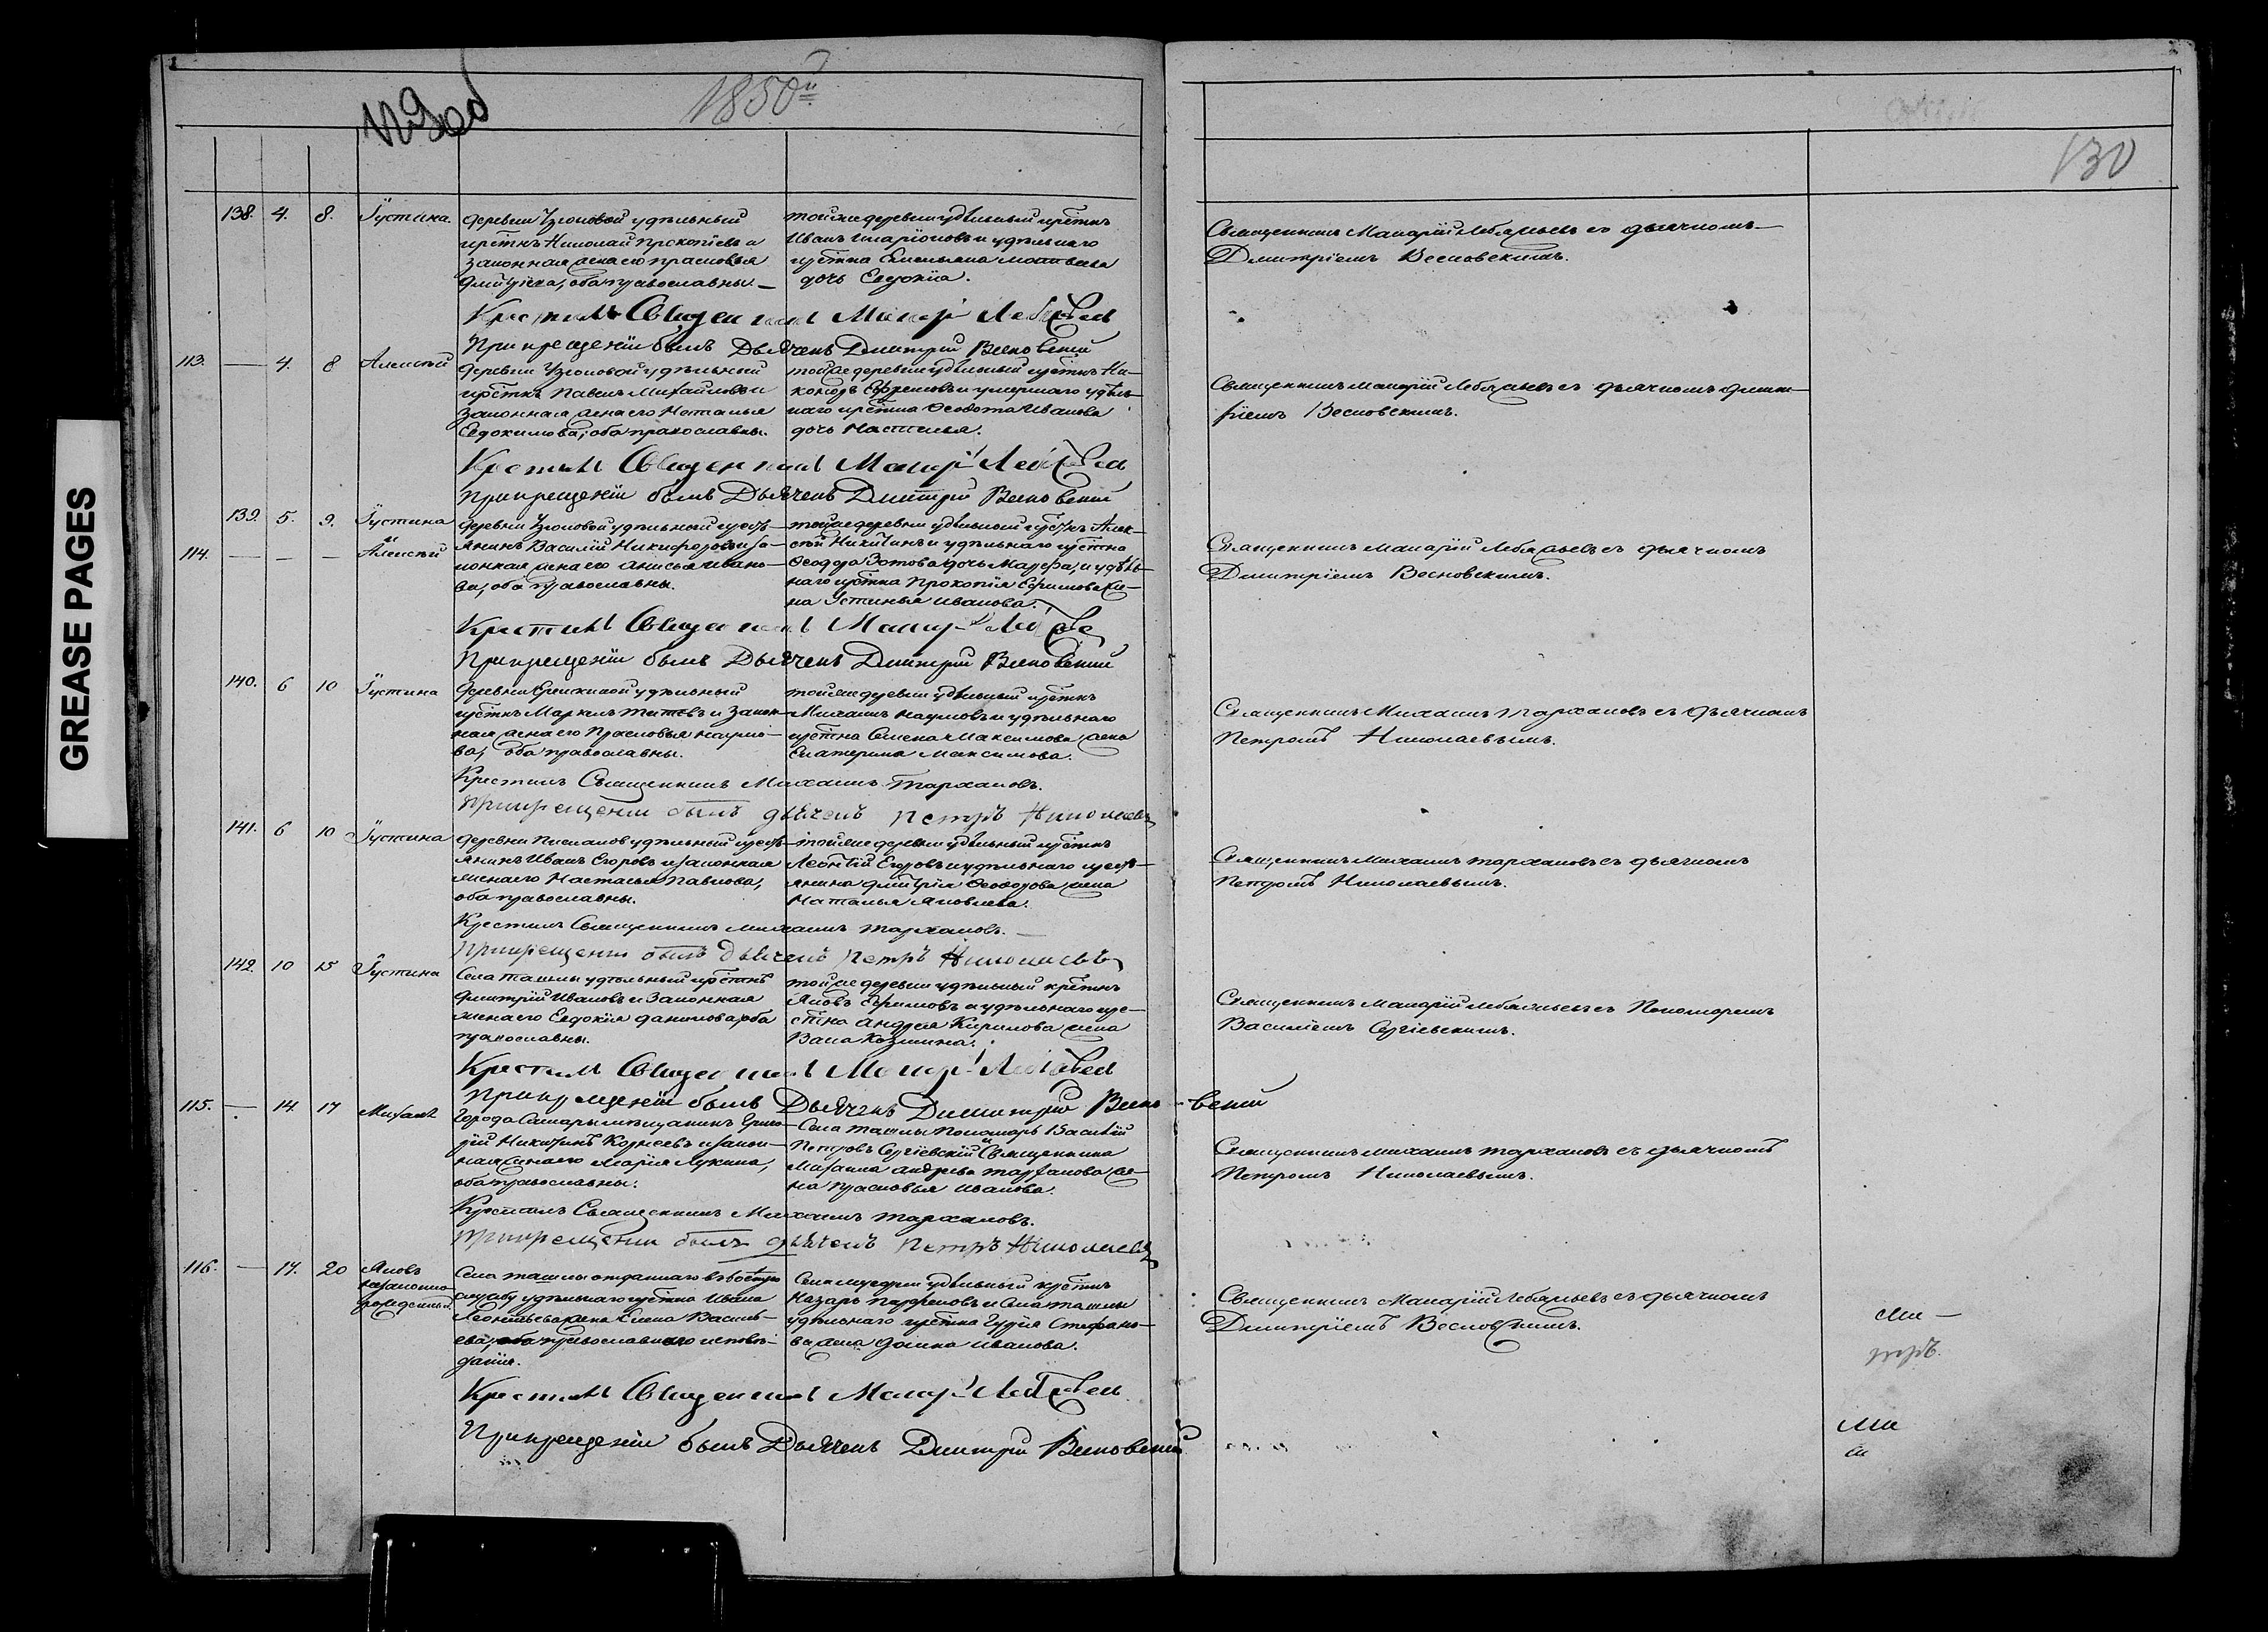 GREASE PAGES
1850й
130
138. 4. 8. Іустина.
деревни Узюковой удѣльный
крестнъ Николай Прокопіевъ и
законная жена его Прасковья
Дмитріева, оба православны.
тойже деревни удѣльный крестнъ
Иванъ Иларіоновъ и удѣльнаго
крестна Емельяна Матвеева
дочь Евдокіа.
Священникъ Макарій Лебяжьевъ съ дьячкомъ
Димитріемъ Весновскимъ.
Крестилъ Священникъ Макар Лебяжьевъ
При крещеніи былъ Дьячекъ Дмитрий Весновский
113. — 4. 8 Алексѣй
деревни Узюковой удѣльный
крестнъ Павелъ Михайловъ и
законная жена его Наталья
Евдокимова, оба православны.
тойже деревни удѣльный крестнъ Ни-
каноръ Ефремовъ и умершаго удѣль-
наго крестна Ѳеодота Иванова
дочь Настасья.
Священникъ Макарій Лебяжьевъ съ дьячкомъ Димит-
ріемъ Весновскимъ.
Крестилъ Священникъ Макар Лебяжьевъ
При крещеніи былъ Дьячекъ Дмитрий Весновский
139. 5. 9. Іустина
114. — — — Алексѣй
деревни Узюковой удѣльный кресть-
янинъ Василій Никифоровъ и за-
конная жена его Анисья Ивано-
ва, оба православны.
тойже деревни удѣльный крестнъ Алек-
сѣй Никитинъ и удѣльнаго крестна
Ѳеодора Зотова дочь Марфа, и удѣль-
наго крестна Прокопія Ефимова же-
на Устинья Иванова.
Священникъ Макарій Лебяжьевъ съ дьячкомъ
Димитріемъ Весновскимъ.
Крестилъ Священникъ Макар Лебяжьевъ
При крещеніи былъ Дьячекъ Дмитрий Весновский
140. 6 10 Іустина
деревни удѣльный
крестнъ Маркелъ Титовъ и закон-
ная жена его Прасковья Наумо-
ва, оба православны.
тойже деревни удѣльный крестнъ
Михаилъ Наумовъ и удѣльнаго
крестна Семена Максимова жена
Екатерина Максимова.
Священникъ Михаилъ Тархановъ съ дьячкомъ
Петромъ Николаевымъ.
Крестилъ Священникъ Михаилъ Тархановъ.
При крещении былъ дьячекъ Петръ Николаевъ
141. 6 10 Іустина
деревни удѣльный кресть-
янинъ Иванъ Егоровъ и законная
жена его Настасья Павлова,
оба православны.
тойже деревни удѣльный крестнъ
Леонтій Егоровъ и удѣльнаго кресть-
янина Дмитрія Ѳеодорова жена
Наталья Яковлева.
Священникъ Михаилъ Тархановъ съ дьячкомъ
Петромъ Николаевымъ.
Крестилъ Священникъ Михаилъ Тархановъ.
При крещении былъ дьячекъ Петръ Николаевъ
142. 10 15 Іустина
Села Ташлы удѣльный крестнъ
Дмитрій Ивановъ и законная
жена его Евдокія Данилова, оба
православны.
тойже деревни удѣльный крестнъ
Яковъ Ефимовъ и удѣльнаго кре-
стна Андрея Кирилова жена
Васа Козмина.
Священникъ Макарій Лебяжьевъ съ Пономаремъ
Василіемъ Сергіевскимъ.
Крестилъ Священникъ Макар Лебяжьевъ
При крещеніи былъ Дьячекъ Димитрий Веснов-ский
115. — 14. 17 Михаилъ
Города Самары мѣщанинъ Григо-
рій Никитинъ Корнеевъ и закон-
ная жена его Марія Лукина,
оба православны.
Села Ташлы Пономарь Василій
Петровъ Сергіевскій и Священника
Михаила Андреева Тарханова же-
на Прасковья Иванова.
Священникъ Михаилъ Тархановъ съ дьячкомъ
Петромъ Николаевымъ.
Крестилъ Священникъ Михаилъ Тархановъ.
При крещении былъ дьячекъ Петръ Николаевъ
116. — 17. 20 Яковъ
незаконно
рожденный.
Села Ташлы отданнаго въ военную
службу удѣльнаго крестна Ивана
Леонтьева жена Елена Василь-
ева, православнаго исповѣ-
данія.
Села удѣльный крестнъ
Назаръ Парфеновъ и Села Ташлы
удѣльнаго крестна Гурія Стефано-
ва жена Домна Иванова.
Священникъ Макарій Лебяжьевъ съ дьячкомъ
Димитріемъ Весновскимъ.
Крестилъ Священникъ Макар Лебяжьевъ
При крещеніи былъ Дьячекъ Дмитрий Весновский